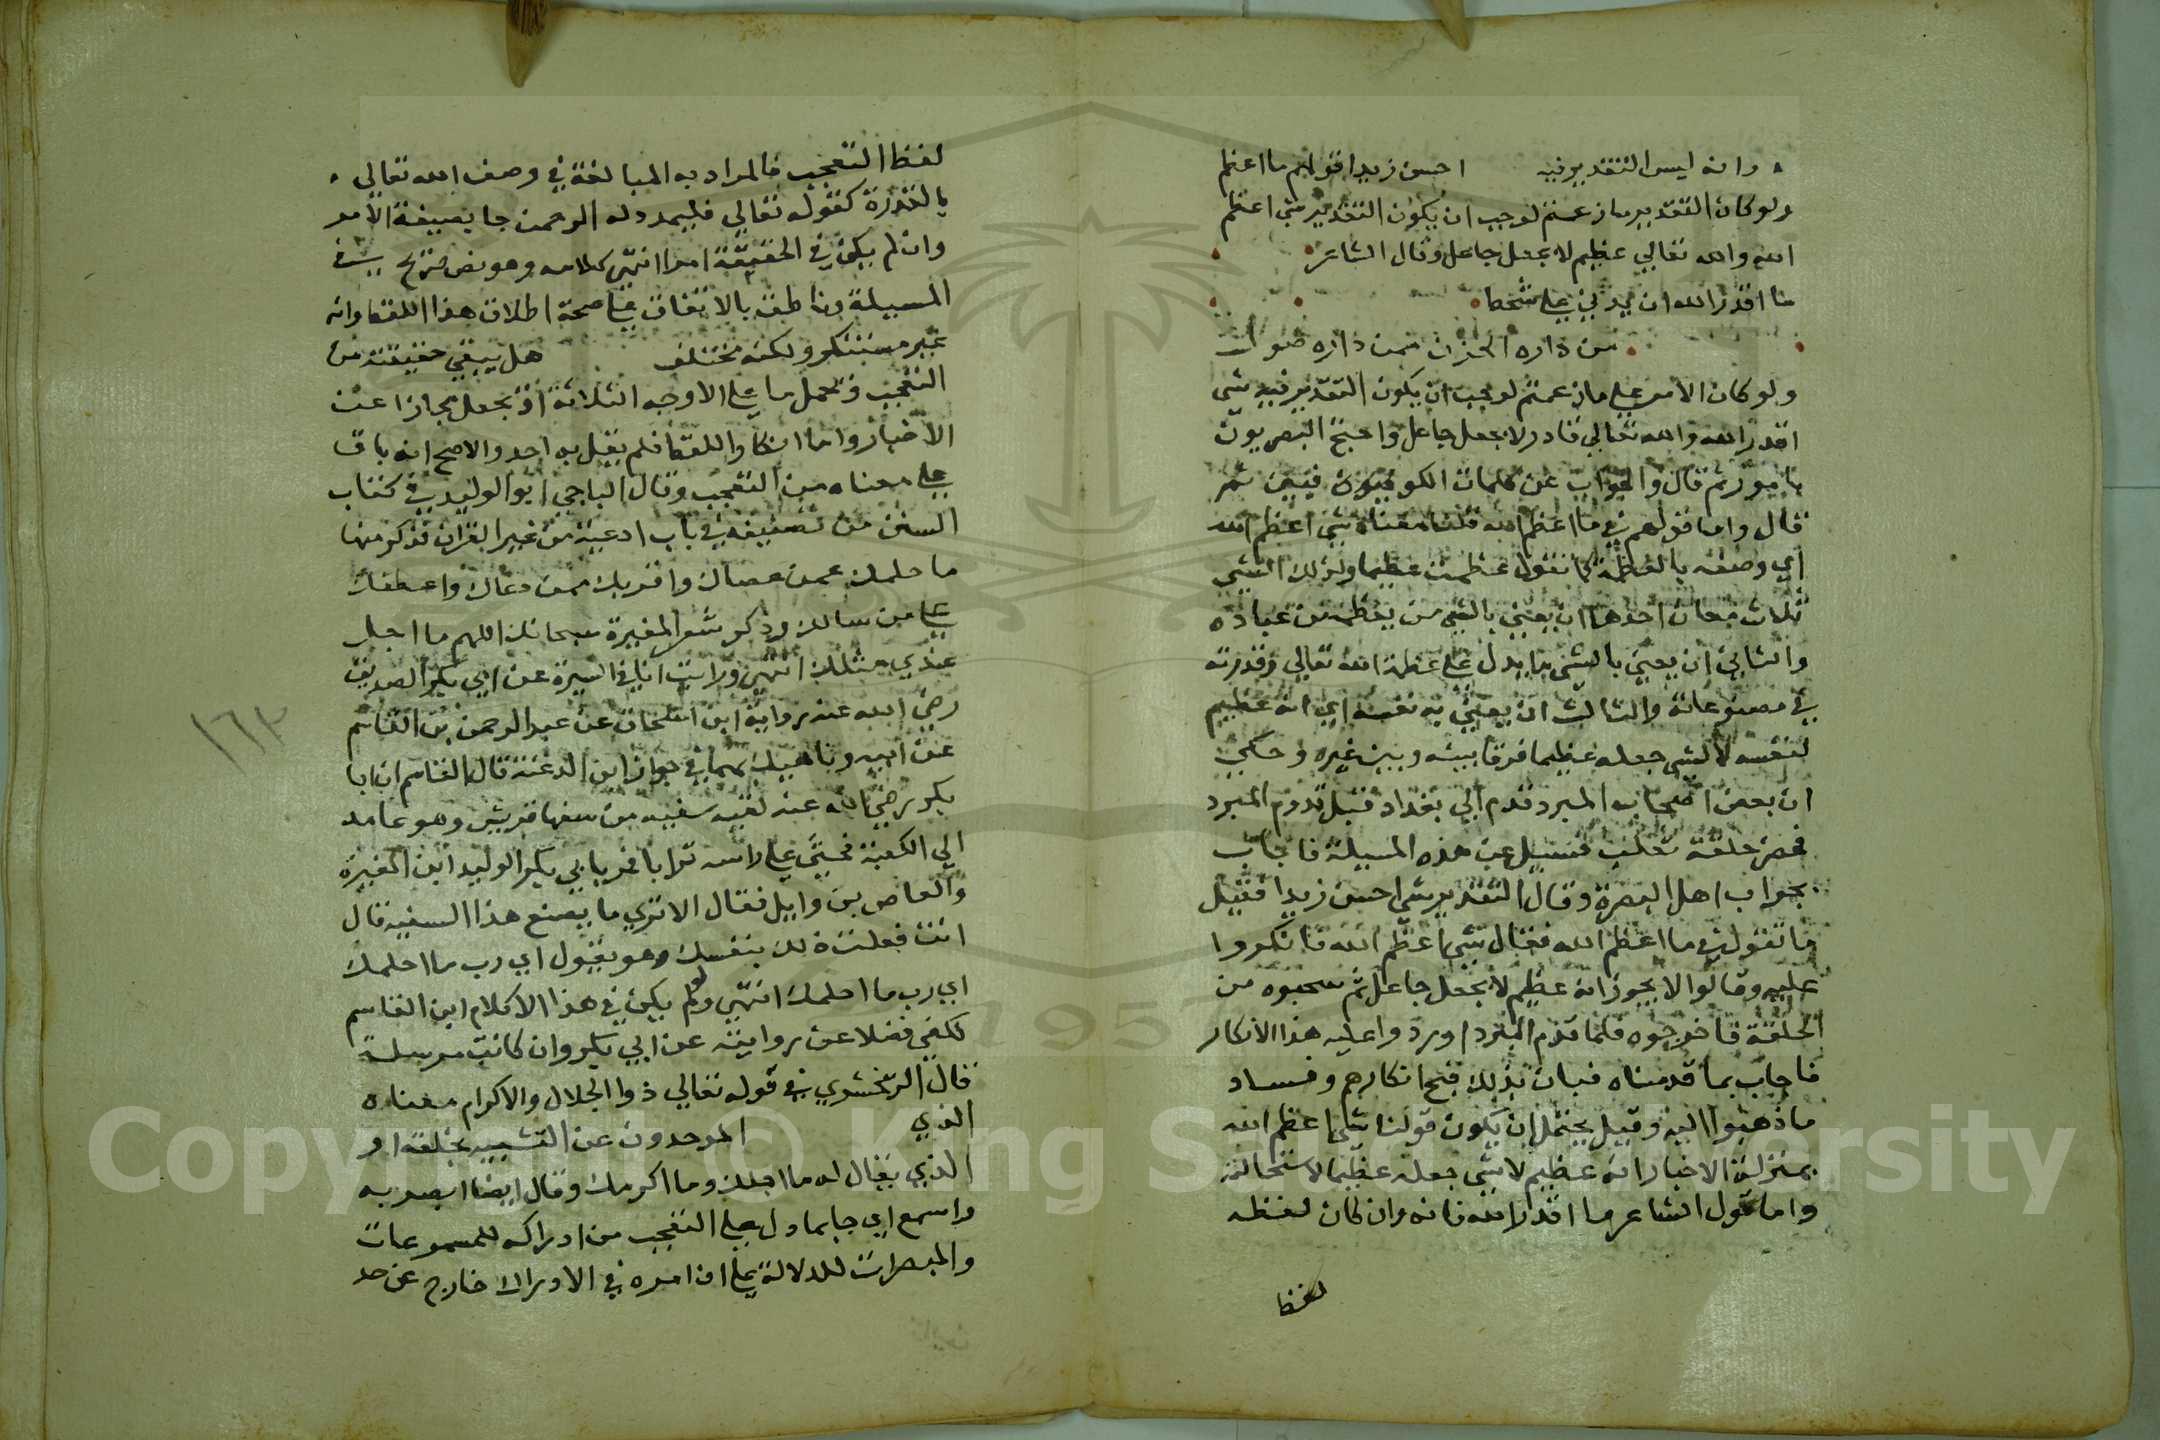 وانه ليس التقدير فيه احسن زيدا قولهم ما اعظم
ولو كان التقدير ما زعمتم لوجب ان يكون التقدير شي اعظم
الله والله تعالي عظيم لا بجعل جاعل وقال الشاعر
ما اقدر الله ان يدني علي شحط
من داره الحزن ممن داره صول
ولو كان الامر علي ما زعمتم لوجب ان يكون التقدير فيه شي
اقدر الله والله تعالي قادر لا بجعل جاعل واحتج البصريون
بامور ثم قال والجواب عن كلمات الكوفيين ثم
قال واما قولهم في ما اعظم الله قلنا معناه شي اعظم الله
اي وصفه بالعظمة كما تقول عظمت عظيما ولذلك الشي
ثلاث معان احدها ان يعني بالشي من يعظمه من عباده
والثاني ان يعني بالشي ما يدل علي عظمة الله تعالي وقدرته
في مصنوعاته والثالث ان يعني به نفسه اي انه عظيم
لنفسه لا لشي جعله عظيما فرقا بينه وبين غيره وحكي
ان بعض اصحاب المبرد قدم الي بغداد قبل قدوم المبرد
فحضر حلقة ثعلب فسيل عن هذه المسيلة فاجاب
بجواب اهل البصرة وقال التقدير شي احسن زيدا فقيل
ما تقول في ما اعظم الله فقال شي اعظم الله فانكروا
عليه وقالوا لا يجوز انه عظيم لا بجعل جاعل ثم سحبوه من
الحلقة فاخرجوه فلما قدم المبرد اوردوا عليه هذا الانكار
فاجاب بما قدمناه فبان بذلك قبح انكارهم وفساد
ما ذهبوا اليه وقيل يحتمل ان يكون قولنا شي اعظم الله
بمنزلة الاخبار انه عظيم لا شي جعله عظيما لاستحالته
واما قول الشاعر ما اقدر الله فانه وان كان لفظه
لفظ
لفظ التعجب فالمراد به المبالغة في وصف الله تعالي
بالقدرة كقوله تعالي فليمدد له الرحمن جا بصيغة الامر
وان لم يكن في الحقيقة امرا انتهي كلامه وهو نص صريح في
المسيلة وناطق بالاتفاق علي صحة اطلاق هذا اللفظ وانه
غير مستنكر ولكنه مختلف هل يبقي حقيقته من
التعجب وتحمل ما علي الاوجه الثلاثة او تجعل مجازا عن
الاخبار واما انكار اللفظ فلم يقل به احد والاصح انه باق
علي معناه من التعجب وقال الباجي ابو الوليد في كتاب
السنن من تصنيفه في باب ادعية من غير القران تذكر منها
ما حلمك عمن عصاك واقربك ممن دعاك واعطفك
علي من سالك وذكر شعر المغيرة سبحانك اللهم ما اجل
عندي مثلك انتهي ورايت انا في السيرة عن ابي بكر الصديق
رضي الله عنه رواية ابن اسحاق عن عبد الرحمن بن القاسم
عن ابيه وناهيك بهما في جوار ابن الدغنة قال القاسم ان ابا
بكر رضي الله عنه لقيه سفيه من سفها قريش وهو عامد
الي الكعبة فحثي علي راسه ترابا فمر بابي بكر الوليد ابن المغيرة
والعاص بن وايل فقال الا تري ما يصنع هذا السفيه قال
انت فعلت ذلك بنفسك وهو يقول اي رب ما احلمك
اي رب ما احلمك انتهي ولو لم يكن في هذا الا كلام ابن القاسم
لكفي فضلا عن روايته عن ابي بكر وان كانت مرسلة
قال الزمخشري في قوله تعالي ذوا الجلال والاكرام معناه
الذي الموحدون عن التشبيه بخلقه او
الذي يقال له ما اجلك وما اكرمك وقال ايضا ابصر به
واسمع اي جا بما دل علي التعجب من ادراكه للمسموعات
والمبصرات للدلالة علي ان امره في الادراك خارج عن حد
١٦٣
Copyright © King Saud University
1957